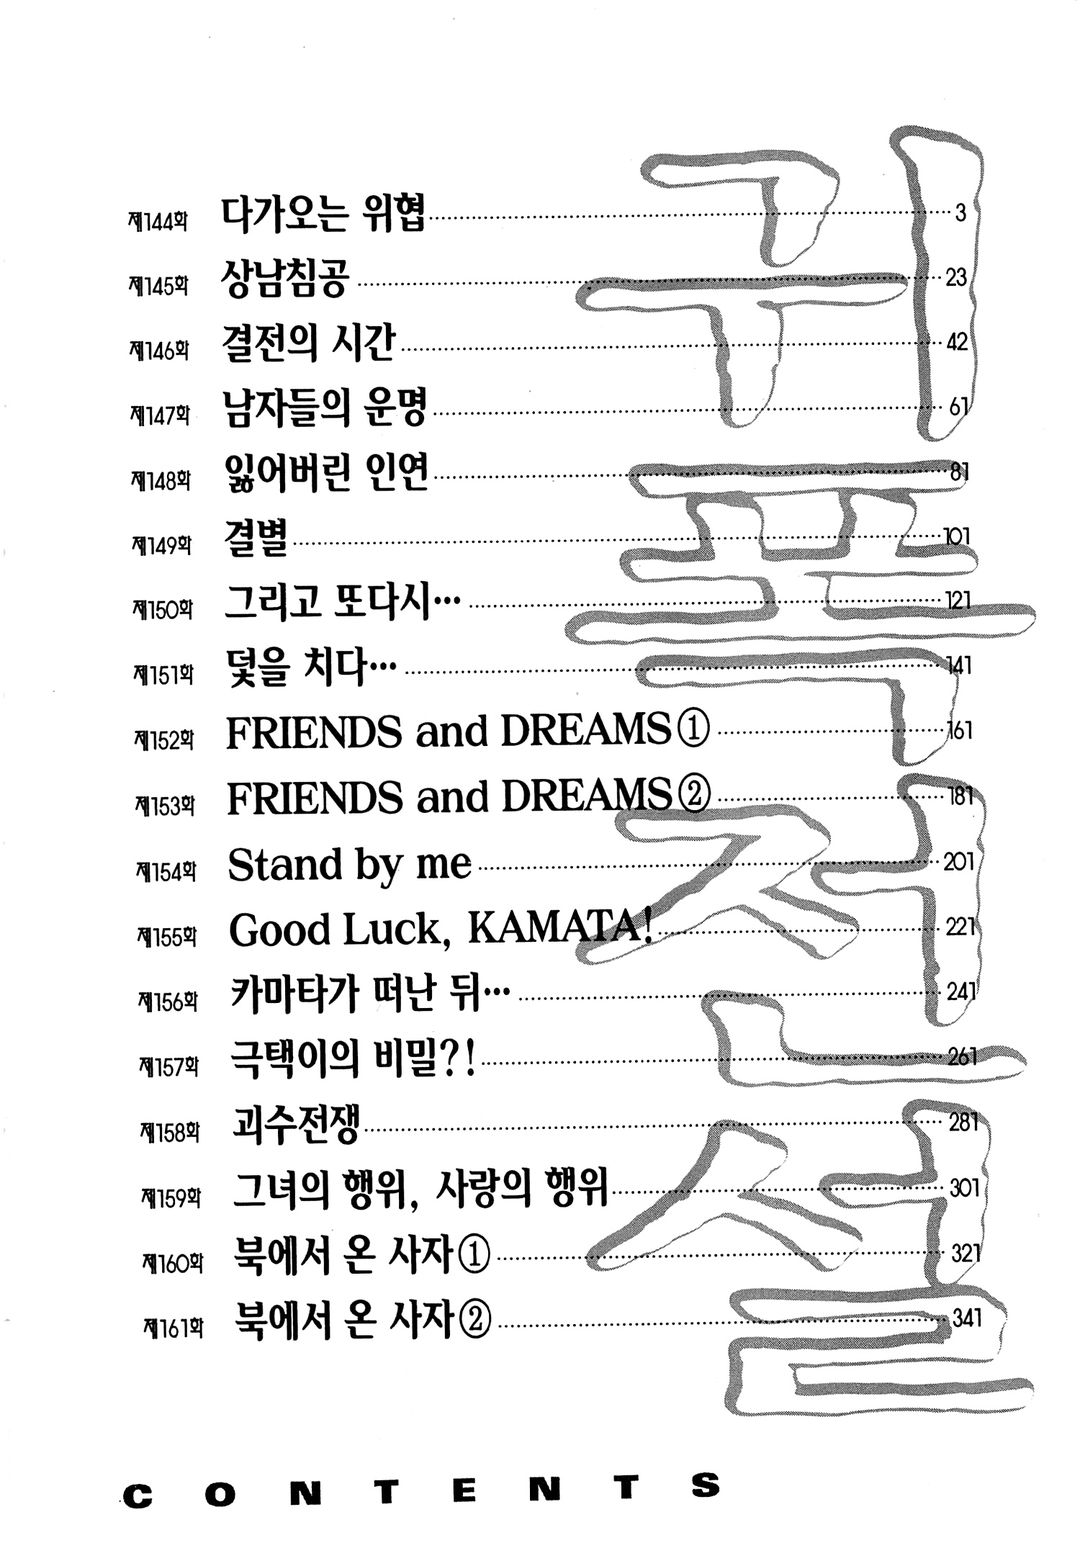 제144화 다가오는 위협 3
제145화 상남침공 23
제146화 결전의 시간 42
제147화 남자들의 운명 61
제148화 잃어버린 인연 81
제149화 결별 101
제150화 그리고 또다시… 121
제151화 덫을 치다… 141
제152화 FRIENDS and DREAMS① 161
제153화 FRIENDS and DREAMS② 181
제154화 Stand by me 201
제155화 Good Luck, KAMATA! 221
제156화 카마타가 떠난 뒤… 241
제157화 극택이의 비밀?! 261
제158화 괴수전쟁 281
제159화 그녀의 행위, 사랑의 행위 301
제160화 북에서 온 사자① 321
제161화 북에서 온 사자② 341
귀폭전설
CONTENTS